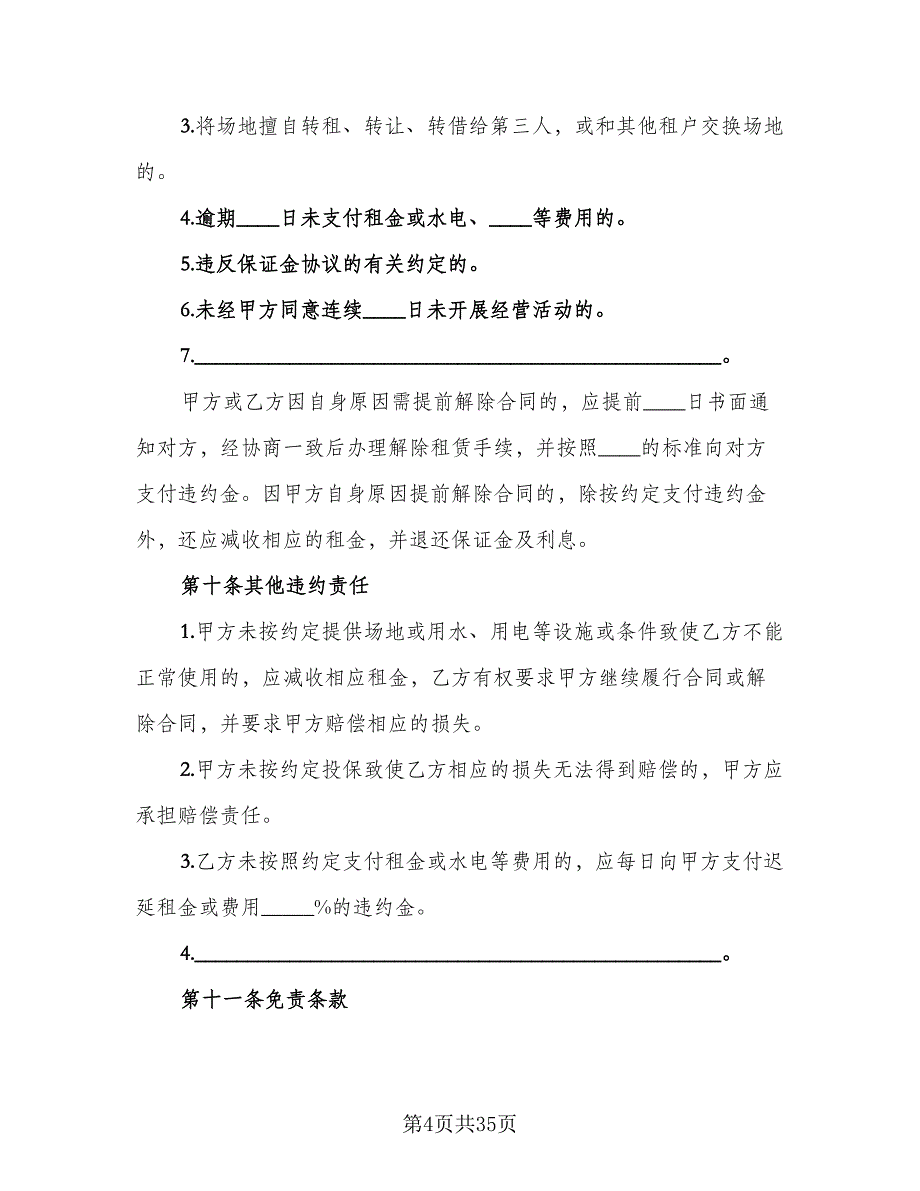 3.将场地擅自转租、转让、转借给第三人，或和其他租户交换场地
的。
4.逾期____日未支付租金或水电、____等费用的。
5.违反保证金协议的有关约定的。
6.未经甲方同意连续____日未开展经营活动的。
7.__________________________________________________。
甲方或乙方因自身原因需提前解除合同的，应提前____日书面通
知对方，经协商一致后办理解除租赁手续，并按照____的标准向对方
支付违约金。因甲方自身原因提前解除合同的，除按约定支付违约金
外，还应减收相应的租金，并退还保证金及利息。
第十条其他违约责任
1.甲方未按约定提供场地或用水、用电等设施或条件致使乙方不能
正常使用的，应减收相应租金，乙方有权要求甲方继续履行合同或解
除合同，并要求甲方赔偿相应的损失。
2.甲方未按约定投保致使乙方相应的损失无法得到赔偿的，甲方应
承担赔偿责任。
3.乙方未按照约定支付租金或水电等费用的，应每日向甲方支付迟
延租金或费用_____%的违约金。
4.__________________________________________________。
第十一条免责条款
第4页共35页